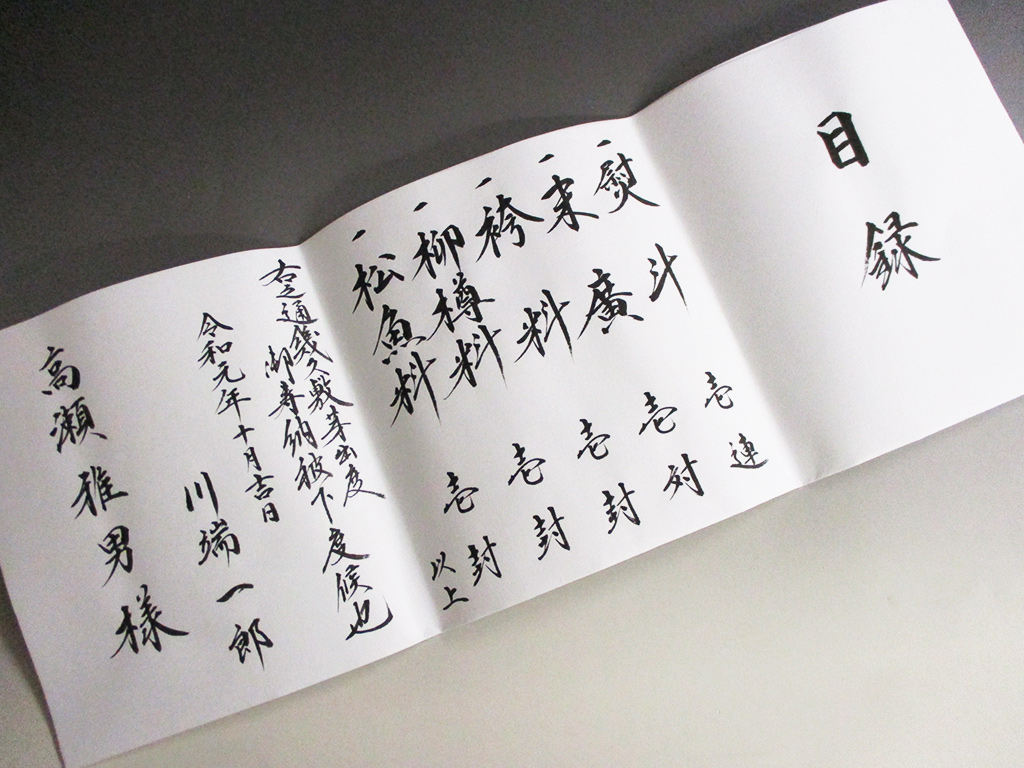 目録
一 熨斗 壱連
一 末廣 壱対
一 袴料 壱封
一 柳樽料 壱封
一 松魚料 壱封
以上
右之通幾久敷芽出度
御寿納被下度候也
令和元年十月吉日
川端一郎
高瀬雅男様